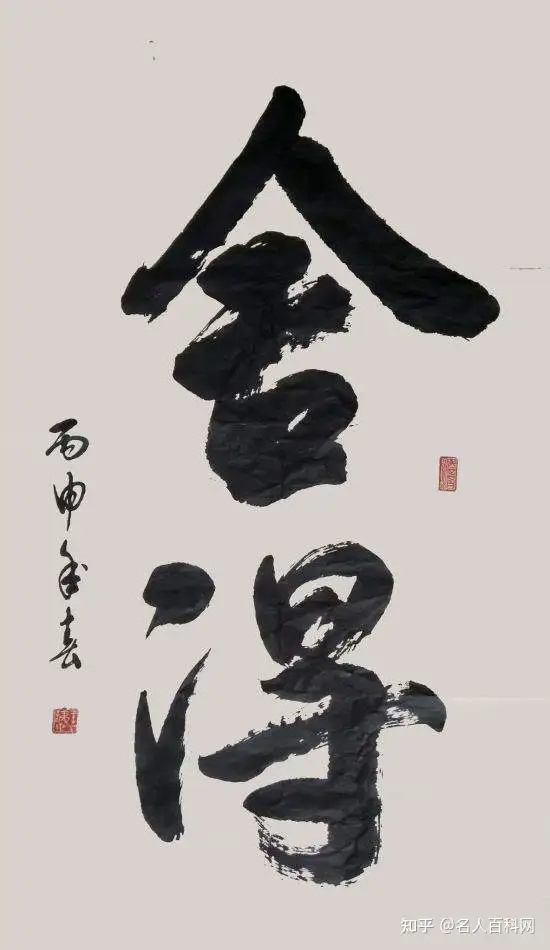 舍得
丙申年春
知乎 @名人百科网